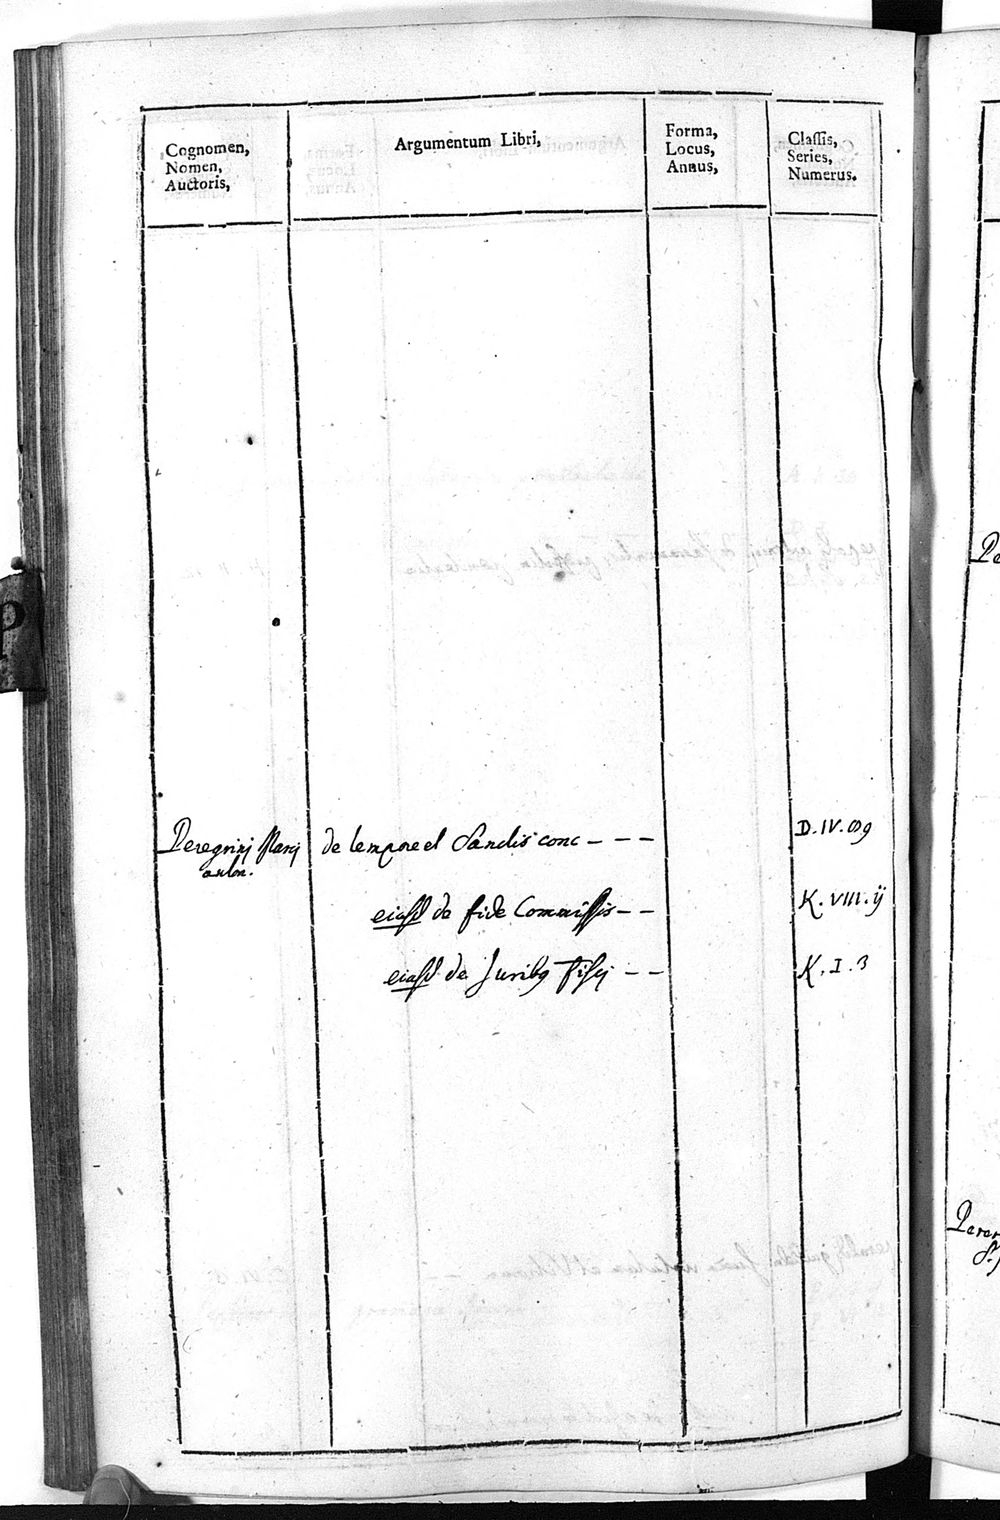 Cognomen,
Nomen,
Auctoris,
Argumentum Libri,
Forma,
Locus,
Annus,
Classis,
Series,
Numerus.
P
Peregrinj Marj de tempore et Sandis conc - - - D. IV. 09
anton.
eiusd de fide Commissis - - K. VIII. ij
eiusd de Juribq fisçj - - K. I. 3
Pe
Perer